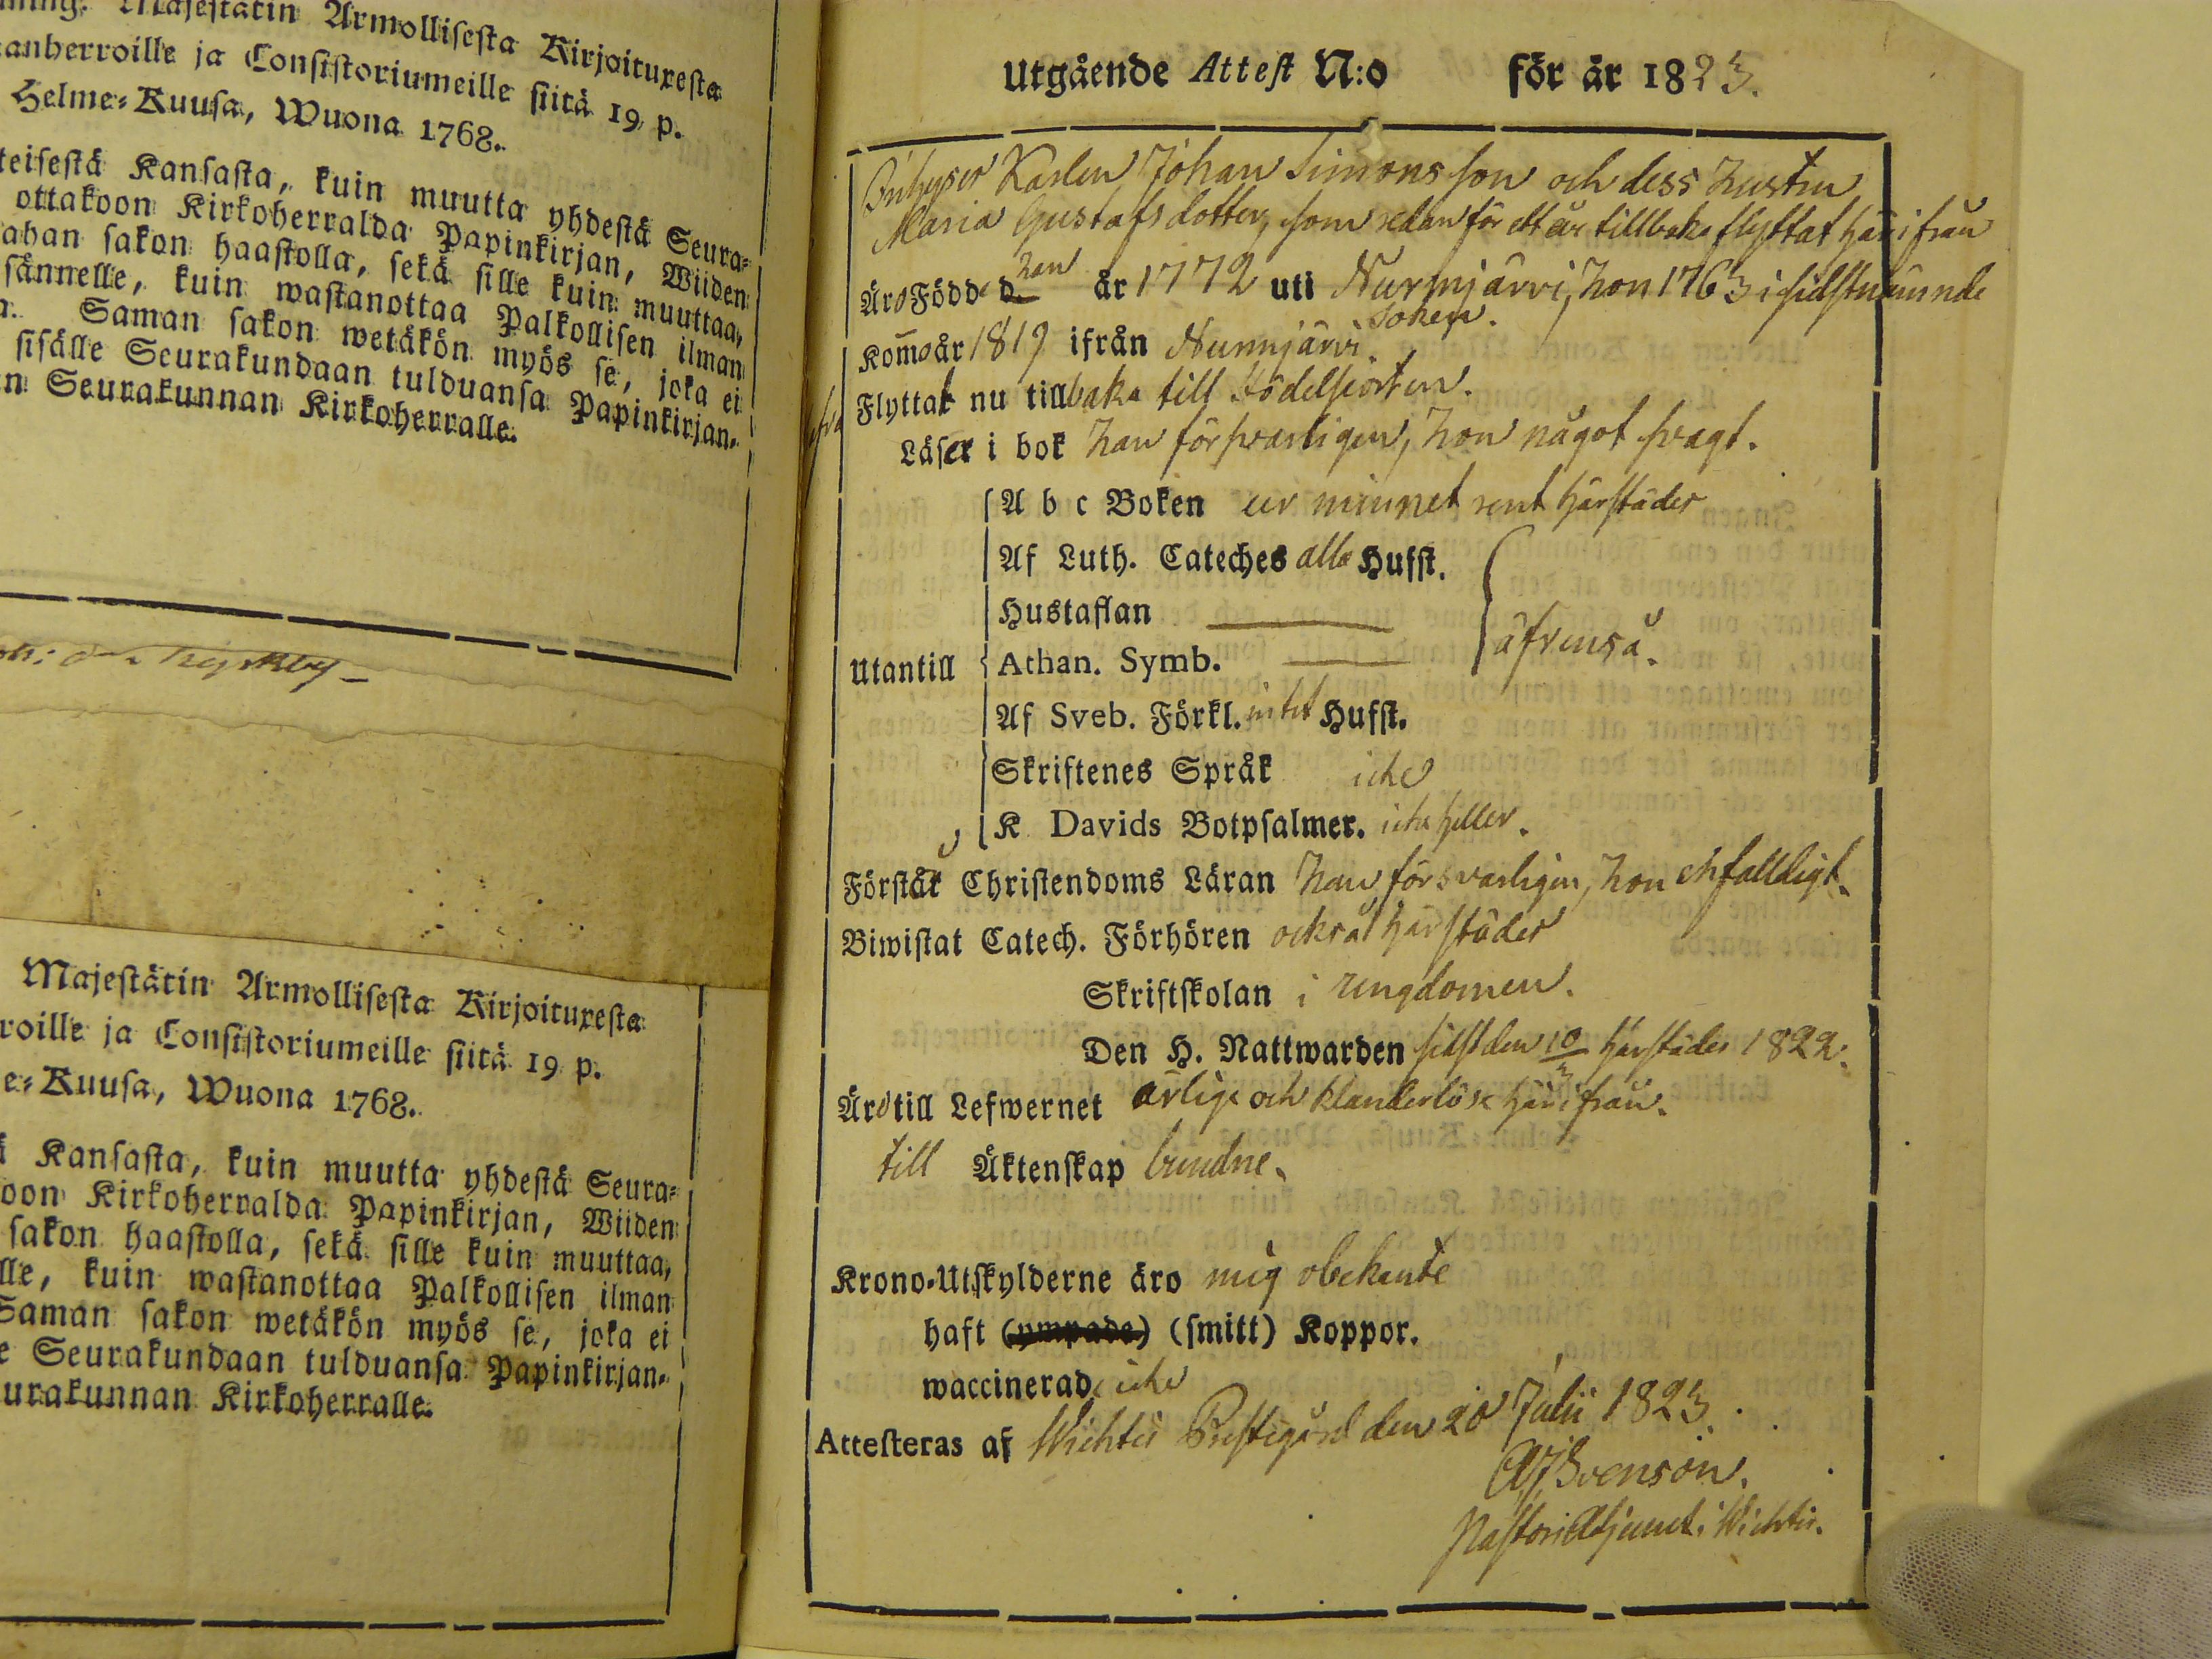 Majestätin Armollisesta Kirjoituxesta
anherroille ja Consistoriumeille siitä 19 p.
Helme-Kuusa, Wuona 1768.
teisestä Kansasta, kuin muutta yhdestä Seura-
ottakoon Kirkoherralda Papinkirjan, Wiiden
ahan sakon haastolla, sekä sille kuin muuttaa,
sännelle, kuin wastanottaa Palkollisen ilman
Saman sakon wetäkön myös se, joka ei
sisälle Seurakundaan tulduansa Papinkirjan-
n Seurakunnan Kirkoherralle.
Majestätin Armollisesta Kirjoituxesta
roille ja Consistoriumeille siitä 19 p.
e-Kuusa, Wuona 1768.
Kansasta, kuin muutta yhdestä Seura-
oon Kirkoherralda Papinkirjan, Wiiden
sakon haastolla, sekä sille kuin muuttaa,
lle, kuin wastanottaa Palkollisen ilman
Saman sakon wetäkön myös se, joka ei
e Seurakundaan tulduansa Papinkirjan-
urakunnan Kirkoherralle.
Utgående Attest N:o för år 1823.
Inhyses Karlen Johan Simonsson och dess hustru
Maria Gustafsdotter, som redan för ett år tillbaka flyttat härifrån
Äro Födde d. han år 1772 uti Nurmjärvi, hon 1763 i sidstnämnde
Soken.
Kommo år 1819 ifrån Nurmjärvi.
Flyttat nu tillbaka till Födelseorten.
Läser i bok han försvarligen, hon något svagt.
A b c Boken ur minnet rent härstädes
Af Luth. Cateches alla Hufst.
Hustaflan
äfvenså.
Utantill
Athan. Symb.
Af Sveb. Förkl. intet Hufst.
Skriftenes Språk icke
K Davids Botpsalmer. icke heller.
Förstår Christendoms Läran han försvarligen, hon enfaldigt.
Biwistat Catech. Förhören också härstädes
Skriftskolan i ungdomen.
Den H. Nattwarden sidst den 10/3 härstädes 1822.
Äro till Lefwernet ärlige och klanderlöse härifrån.
till Äktenskap bundne.
Krono-Utskylderne äro mig obekante
haft (ympade) (smitt) Koppor.
waccinerade icke
Attesteras af Wichtis Prestegård den 20 Julii 1823.
AJSvenson.
Pastors Adjunct i Wichtis.